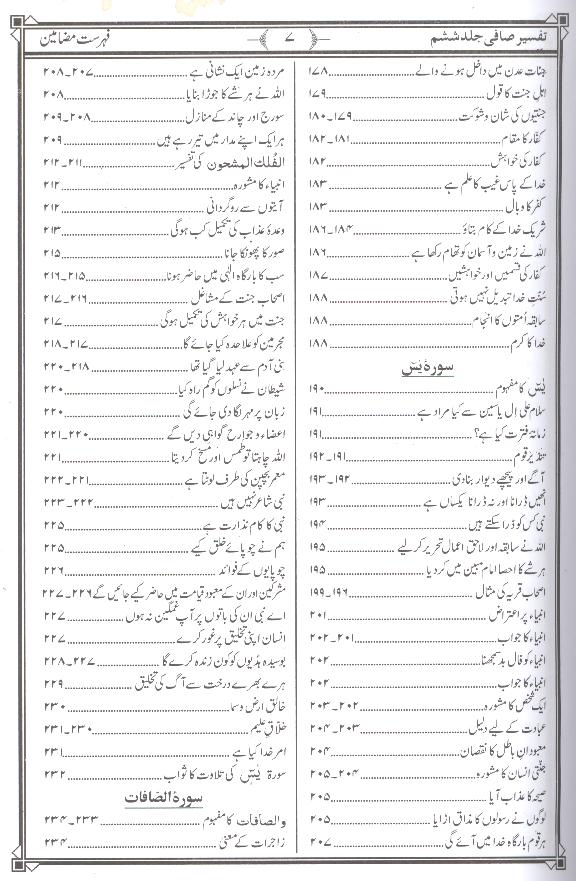 تفسیر صافی جلد ششم ۷ فہرست مضامین
جنات عدن میں داخل ہونے والے ۱۷۸
اہل جنت کا قول ۱۷۹
جنتیوں کی شان و شوکت ۱۷۹۔۱۸۰
کفار کا مقام ۱۸۱۔۱۸۲
کفار کی خواہش ۱۸۲
خدا کے پاس غیب کا علم ہے ۱۸۳
کفر کا وبال ۱۸۳
شریک خدا کے کام بتاؤ ۱۸۴۔۱۸۶
اللہ نے زمین و آسمان کو تھام رکھا ہے ۱۸۶
کفار کی قسمیں اور خواہشیں ۱۸۷
سُنتِ خدا تبدیل نہیں ہوتی ۱۸۸
سابقہ اُمتوں کا انجام ۱۸۸
خدا کا کرم ۱۸۸
سورۂ یٰسٓ
یٰسٓ کا مفہوم ۱۹۰
سلام علیٰ اِل یاسین سے کیا مراد ہے ۱۹۱
زمانۂ فترت کیا ہے؟ ۱۹۱
تنذیرِ قوم ۱۹۱۔۱۹۲
آگے اور پیچھے دیوار بنا دی ۱۹۲۔۱۹۳
انھیں ڈرانا اور نہ ڈرانا یکساں ہے ۱۹۳
نبی کس کو ڈرا سکتے ہیں ۱۹۴
اللہ نے سابقہ اور لاحق اعمال تحریر کر لیے ۱۹۵
ہر شے کا احصا امام مبین میں کر دیا ۱۹۵
اصحاب قریہ کی مثال ۱۹۶۔۱۹۹
انبیاء پر اعتراض ۲۰۱
انبیاء کا جواب ۲۰۱۔۲۰۲
انبیاء کو فال بد سمجھنا ۲۰۲
انبیاء کا جواب ۲۰۲
ایک شخص کا مشورہ ۲۰۲۔۲۰۳
عبادت کے لیے دلیل ۲۰۳۔۲۰۴
معبودانِ باطل کا نقصان ۲۰۴
جنتی انسان کا مشورہ ۲۰۴۔۲۰۵
صیحہ کا عذاب آیا ۲۰۵
لوگوں نے رسولوں کا مذاق اڑایا ۲۰۵
ہر قوم بارگاہ خدا میں آئے گی ۲۰۷
مردہ زمین ایک نشانی ہے ۲۰۷۔۲۰۸
اللہ نے ہر شے کا جوڑا بنایا ۲۰۸
سورج اور چاند کے منازل ۲۰۸۔۲۰۹
ہر ایک اپنے مدار میں تیر رہے ہیں ۲۰۹
الفُلك المشحون کی تفسیر ۲۱۱۔۲۱۲
انبیاء کا مشورہ ۲۱۲
آیتوں سے روگردانی ۲۱۲
وعدۂ عذاب کی تکمیل کب ہوگی ۲۱۳
صور کا پھونکا جانا ۲۱۵
سب کا بارگاہ الٰہی میں حاضر ہونا ۲۱۵۔۲۱۶
اصحاب جنت کے مشاغل ۲۱۶۔۲۱۷
جنت میں ہر خواہش کی تکمیل ہوگی ۲۱۷
مجرمین کو علاحدہ کیا جائے گا ۲۱۷۔۲۱۸
بنی آدم سے عہد لیا گیا تھا ۲۱۸۔۲۲۰
شیطان نے نسلوں کو گم راہ کیا ۲۲۰
زبان پر مہر لگا دی جائے گی ۲۲۰
اعضاء و جوارح گواہی دیں گے ۲۲۰۔۲۲۱
اللہ چاہتا تو طمس اور مسخ کر دیتا ۲۲۱
معمر بچپن کی طرف لوٹتا ہے ۲۲۱۔۲۲۲
نبی شاعر نہیں ہیں ۲۲۲۔۲۲۳
نبی کا کام نذارت ہے ۲۲۵
ہم نے چوپائے خلق کیے ۲۲۵
چوپایوں کے فوائد ۲۲۶
مشرکین اور ان کے معبود قیامت میں حاضر کیے جائیں گے ۲۲۶۔۲۲۷
اے نبی ان کی باتوں پر آپ غمگین نہ ہوں ۲۲۷
انسان اپنی تخلیق پر غور کرے ۲۲۷
بوسیدہ ہڈیوں کو کون زندہ کرے گا ۲۲۷۔۲۲۸
ہرے بھرے درخت سے آگ کی تخلیق ۲۲۹
خالق ارض و سما ۲۳۰
خلّاقِ علیم ۲۳۰۔۲۳۱
امر خدا کیا ہے ۲۳۱
سورۃ یٰسٓ کی تلاوت کا ثواب ۲۳۲
سورۃ الصافات
والصافات کا مفہوم ۲۳۳۔۲۳۴
زاجرات کے معنی ۲۳۴